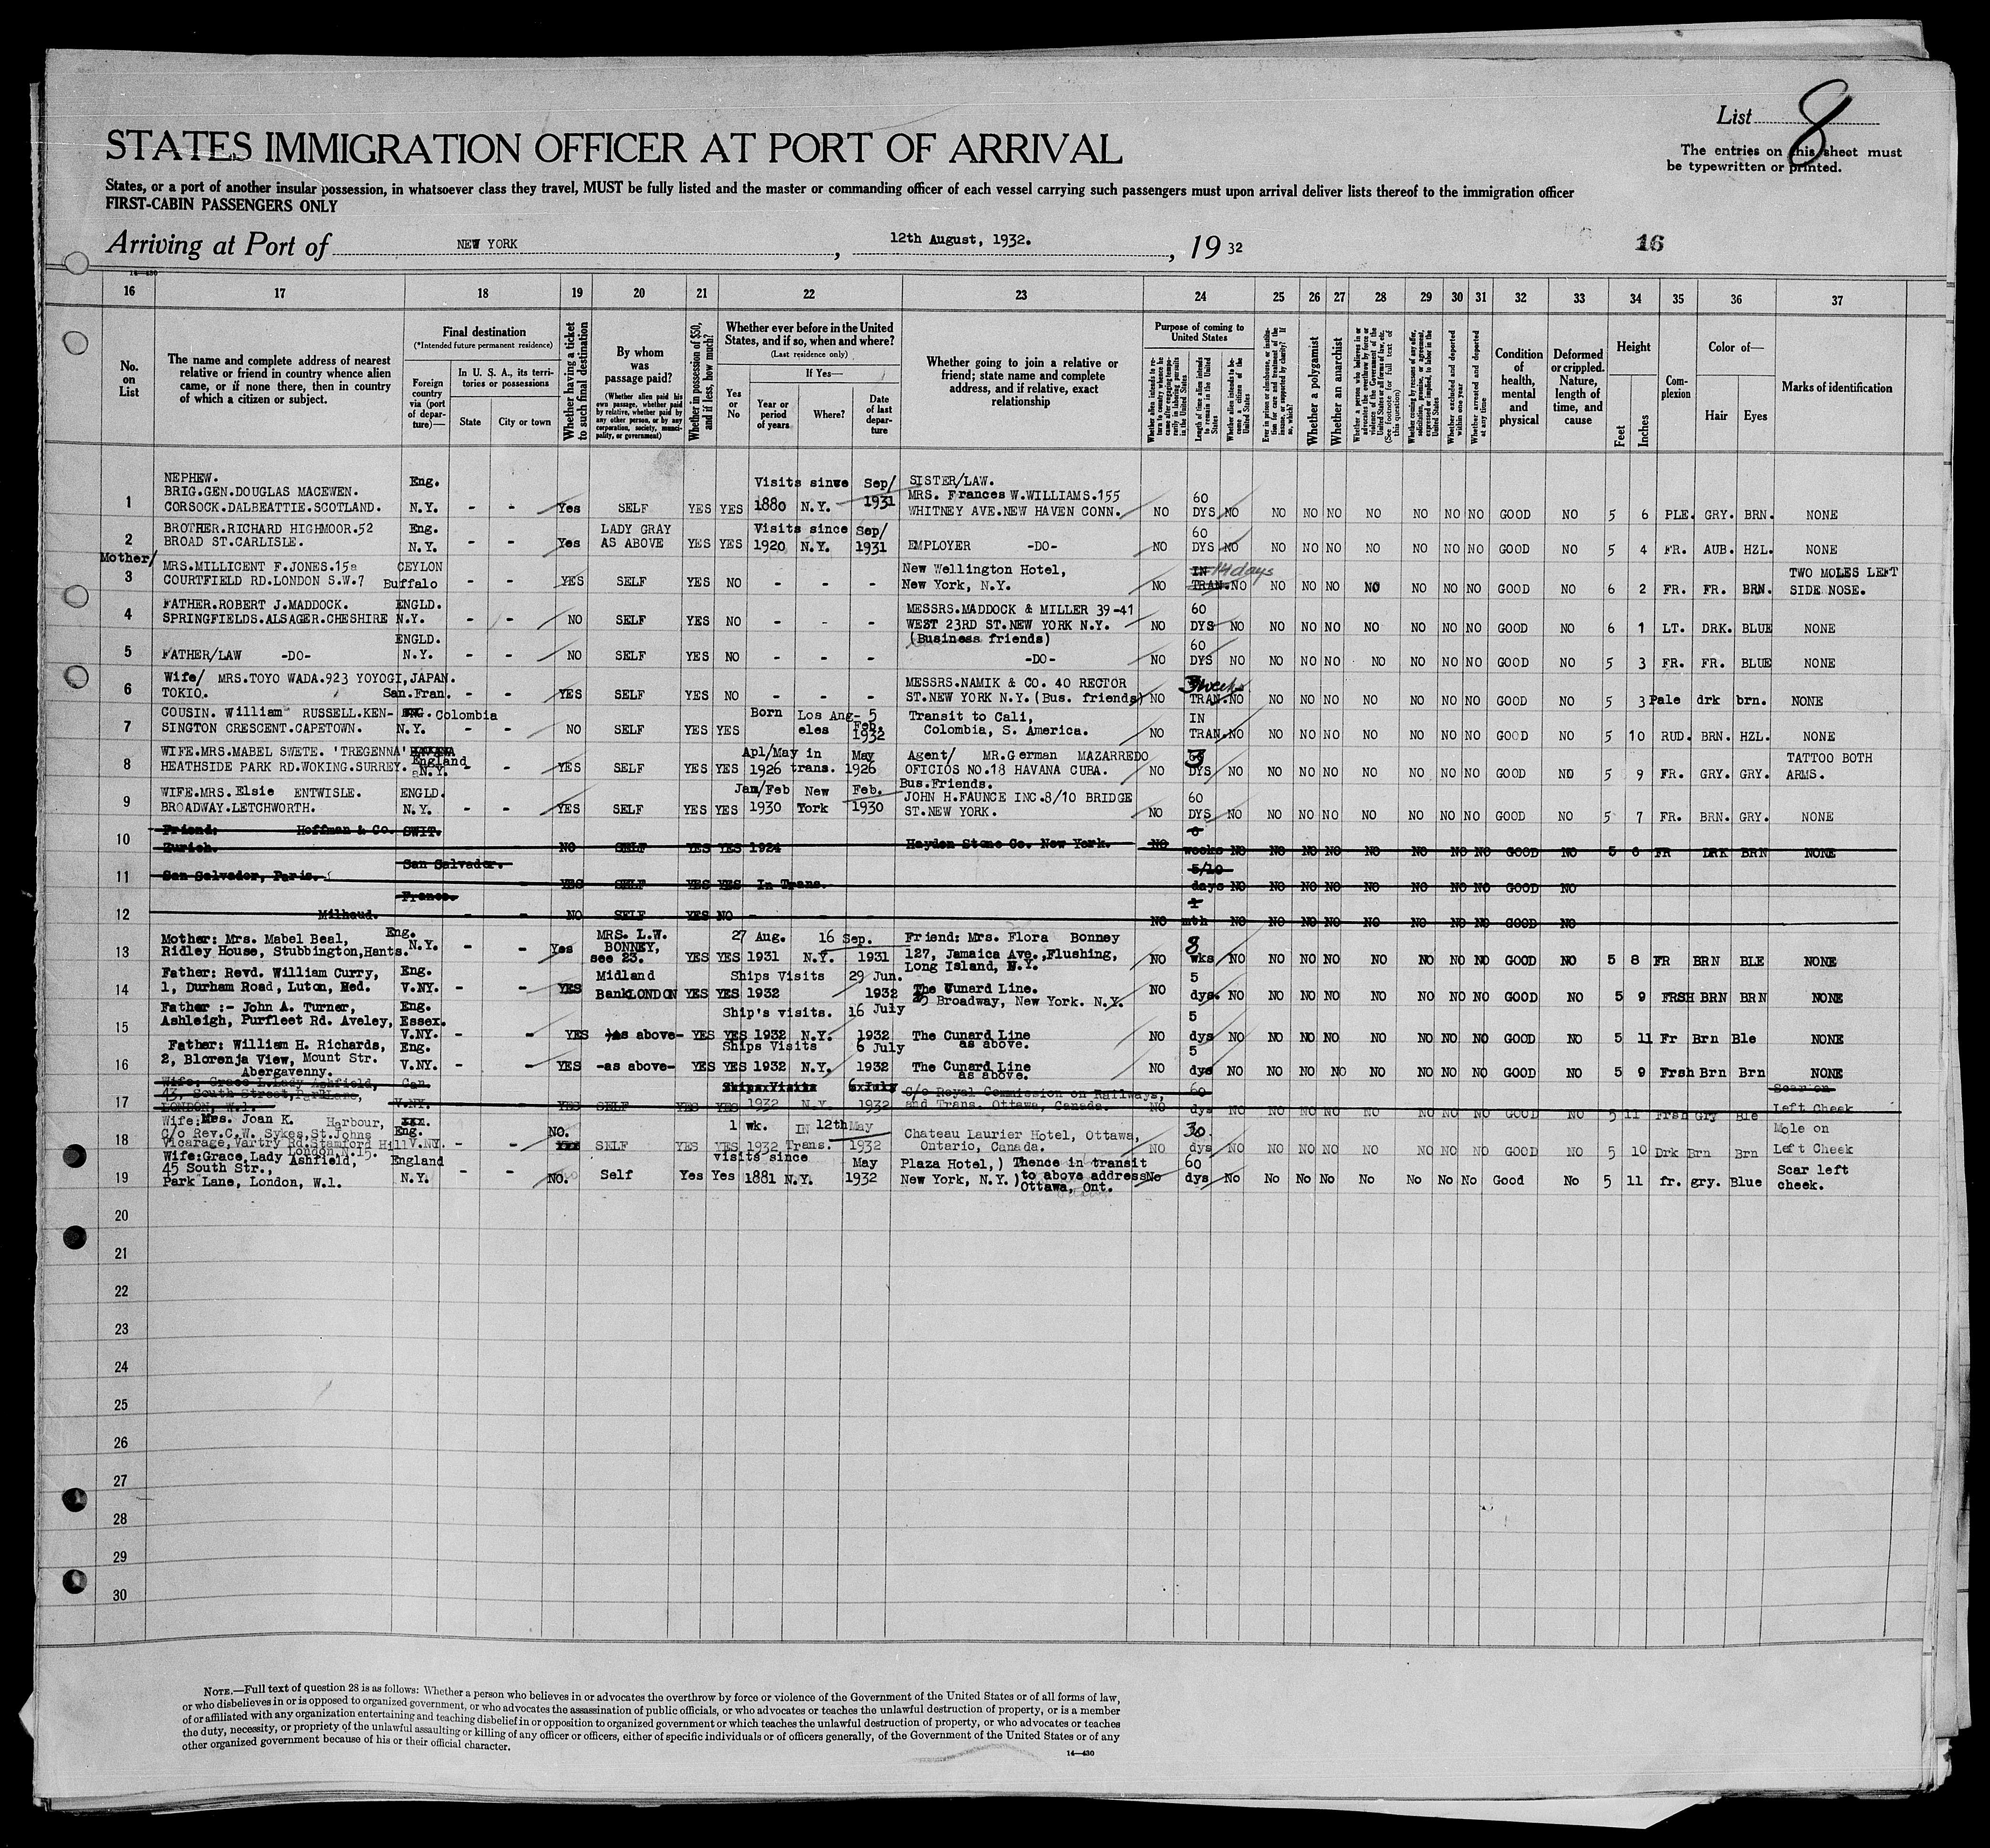 List 8
The entries on this sheet must
be typewritten or printed.
STATES IMMIGRATION OFFICER AT PORT OF ARRIVAL
States, or a port of another insular possession, in whatsoever class they travel, MUST be fully listed and the master or commanding officer of each vessel carrying such passengers must upon arrival deliver lists thereof to the immigration officer
FIRST-CABIN PASSENGERS ONLY
Arriving at Port of NEW YORK , 12th August, 1932. , 19 32
16
14—430
16 17 18 19 20 21 22 23 24 25 26 27 28 29 30 31 32 33 34 35 36 37
No. on List
The name and complete address of nearest relative or friend in country whence alien came, or if none there, then in country of which a citizen or subject.
Final destination
(*Intended future permanent residence)
Foreign country via (port of departure)—
In U. S. A., its territories or possessions
State
City or town
Whether having a ticket to such final destination
By whom was passage paid?
(Whether alien paid his own passage, whether paid by relative, whether paid by any other person, or by any corporation, society, municipality, or government)
Whether in possession of $50, and if less, how much?
Whether ever before in the United States, and if so, when and where?
(Last residence only)
Yes or No
If Yes—
Year or period of years
Where?
Date of last departure
Whether going to join a relative or friend; state name and complete address, and if relative, exact relationship
Purpose of coming to United States
Whether alien intends to return to country whence he came after engaging temporarily in laboring pursuits in the United States
Length of time alien intends to remain in the United States
Whether alien intends to become a citizen of the United States
Ever in prison or almshouse, or institution for care and treatment of the insane, or supported by charity? If so, which?
Whether a polygamist
Whether an anarchist
Whether a person who believes in or advocates the overthrow by force or violence of the Government of the United States or all forms of law, etc. (See footnote for full text of this question)
Whether coming by reasons of any offer, solicitation, promise, or agreement, expressed or implied, to labor in the United States
Whether excluded and deported within one year
Whether arrested and deported at any time
Condition of health, mental and physical
Deformed or crippled. Nature, length of time, and cause
Height
Feet
Inches
Complexion
Color of—
Hair
Eyes
Marks of identification
1 NEPHEW. BRIG.GEN.DOUGLAS MACEWEN. CORSOCK.DALBEATTIE.SCOTLAND. Eng. N.Y. - - Yes SELF YES YES Visits sinwe 1880 N.Y. Sep/ 1931 SISTER/LAW. MRS. Frances W.WILLIAMS.155 WHITNEY AVE.NEW HAVEN CONN. NO 60 DYS NO NO NO NO NO NO NO NO GOOD NO 5 6 PLE. GRY. BRN. NONE
2 BROTHER.RICHARD HIGHMOOR.52 BROAD ST.CARLISLE. Eng. N.Y. - - Yes LADY GRAY AS ABOVE YES YES Visits since 1920 N.Y. Sep/ 1931 EMPLOYER -DO- NO 60 DYS NO NO NO NO NO NO NO NO GOOD NO 5 4 FR. AUB. HZL. NONE
3 Mother/ MRS.MILLICENT F.JONES.15a COURTFIELD RD.LONDON S.W.7 CEYLON Buffalo - - YES SELF YES NO - - - New Wellington Hotel, New York, N.Y. NO IN TRAN. 14 days NO NO NO NO NO NO NO NO GOOD NO 6 2 FR. FR. BRN. TWO MOLES LEFT SIDE NOSE.
4 FATHER.ROBERT J.MADDOCK. SPRINGFIELDS.ALSAGER.CHESHIRE ENGLD. N.Y. - - NO SELF YES NO - - - MESSRS.MADDOCK & MILLER 39-41 WEST 23RD ST.NEW YORK N.Y. (Business friends) NO 60 DYS NO NO NO NO NO NO NO NO GOOD NO 6 1 LT. DRK. BLUE NONE
5 FATHER/LAW -DO- ENGLD. N.Y. - - NO SELF YES NO - - - -DO- NO 60 DYS NO NO NO NO NO NO NO NO GOOD NO 5 3 FR. FR. BLUE NONE
6 Wife/ MRS.TOYO WADA.923 YOYOGI, TOKIO. JAPAN. San.Fran. - - YES SELF YES NO - - - MESSRS.NAMIK & CO. 40 RECTOR ST.NEW YORK N.Y.(Bus. friends) NO 3 weeks TRAN. NO NO NO NO NO NO NO NO GOOD NO 5 3 Pale drk brn. NONE
7 COUSIN. William RUSSELL.KEN- SINGTON CRESCENT.CAPETOWN. Colombia N.Y. - - NO SELF YES YES Born Los Ang- eles 5 Feb. 1932 Transit to Cali, Colombia, S. America. NO IN TRAN. NO NO NO NO NO NO NO NO GOOD NO 5 10 RUD. BRN. HZL. NONE
8 WIFE.MRS.MABEL SWETE. 'TREGENNA' HEATHSIDE PARK RD.WOKING.SURREY. England N.Y. - - YES SELF YES YES Apl/May in 1926 trans. May 1926 Agent/ MR.German MAZARREDO OFICIOS NO.18 HAVANA CUBA. NO 3 DYS NO NO NO NO NO NO NO NO GOOD NO 5 9 FR. GRY. GRY. TATTOO BOTH ARMS.
9 WIFE.MRS.Elsie ENTWISLE. BROADWAY.LETCHWORTH. ENGLD. N.Y. - - YES SELF YES YES Jan/Feb 1930 New York Feb. 1930 Bus.Friends. JOHN H.FAUNCE INC.8/10 BRIDGE ST.NEW YORK. NO 60 DYS NO NO NO NO NO NO NO NO GOOD NO 5 7 FR. BRN. GRY. NONE
10 Friend: Hoffman & Co. Zurich. SWIT. NO SELF YES YES 1924 Hayden Stone Co. New York. NO 6 weeks NO NO NO NO NO NO NO NO GOOD NO 5 6 FR DRK BRN NONE
11 San Salvador, Paris. San Salvador. YES SELF YES YES In Trans. 5/10 days NO NO NO NO NO NO NO NO GOOD NO
12 Milhaud. France. - - NO SELF YES NO - - - NO 1 mth NO NO NO NO NO NO NO NO GOOD NO
13 Mother: Mrs. Mabel Beal, Ridley House, Stubbington,Hants. Eng. N.Y. - - Yes MRS. L.W. BONNEY, see 23. YES YES 27 Aug. 1931 N.Y. 16 Sep. 1931 Friend: Mrs. Flora Bonney 127, Jamaica Ave.,Flushing, Long Island, N.Y. NO 8 wks NO NO NO NO NO NO NO NO GOOD NO 5 8 FR BRN BLE NONE
14 Father: Revd. William Curry, 1, Durham Road, Luton, Hed. Eng. V.NY. - - YES Midland Bank LONDON YES YES Ships Visits 1932 29 Jun. 1932 The Cunard Line. 25 Broadway, New York. N.Y. NO 5 dys. NO NO NO NO NO NO NO NO GOOD NO 5 9 FRSH BRN BRN NONE
15 Father :- John A. Turner, Ashleigh, Purfleet Rd. Aveley, Essex. Eng. V.NY. - - YES )As above- YES YES Ship's visits. 1932 N.Y. 16 July 1932 The Cunard Line as above. NO 5 dys NO NO NO NO NO NO NO NO GOOD NO 5 11 Fr Brn Ble NONE
16 Father: William H. Richards, 2, Blorenja View, Mount Str. Abergavenny. Eng. V.NY. - - YES -as above- YES YES Ships Visits 1932 N.Y. 6 July 1932 The Cunard Line as above. NO 5 dys NO NO NO NO NO NO NO NO GOOD NO 5 9 Frsh Brn Brn NONE
17 Wife: Grace L.Lady Ashfield, 43, South Street,Park Lane, LONDON, W.1. Can. V.NY. YES SELF YES YES Ships Visits 1932 N.Y. 6 July 1932 C/o Royal Commission on Railways, and Trans. Ottawa, Canada. NO 60 dys NO NO NO NO NO NO NO NO GOOD NO 5 11 Frsh Gry Ble Scar on Left Cheek
18 Wife: Mrs. Joan K. Harbour, C/o Rev.C.W. Sykes,St.Johns Vicarage,Vartry Rd.Stamford Hill London N.15. Eng. V.NY. - - NO. SELF YES YES 1 wk. 1932 IN Trans. 12th May 1932 Chateau Laurier Hotel, Ottawa, Ontario, Canada. NO 30 dys NO NO NO NO NO NO NO NO GOOD NO 5 10 Drk Brn Brn Mole on Left Cheek
19 Wife:Grace,Lady Ashfield, 45 South Str., Park Lane, London, W.1. England N.Y. - - NO. Self Yes Yes visits since 1881 N.Y. May 1932 Plaza Hotel,) Thence in transit New York, N.Y.)to above address Ottawa, Ont. No 60 dys No No No No No No No No Good No 5 11 fr. gry. Blue Scar left cheek.
20
21
22
23
24
25
26
27
28
29
30
NOTE.—Full text of question 28 is as follows: Whether a person who believes in or advocates the overthrow by force or violence of the Government of the United States or of all forms of law,
or who disbelieves in or is opposed to organized government, or who advocates the assassination of public officials, or who advocates or teaches the unlawful destruction of property, or is a member
of or affiliated with any organization entertaining and teaching disbelief in or opposition to organized government or which teaches the unlawful destruction of property, or who advocates or teaches
the duty, necessity, or propriety of the unlawful assaulting or killing of any officer or officers, either of specific individuals or of officers generally, of the Government of the United States or of any
other organized government because of his or their official character.
14—430